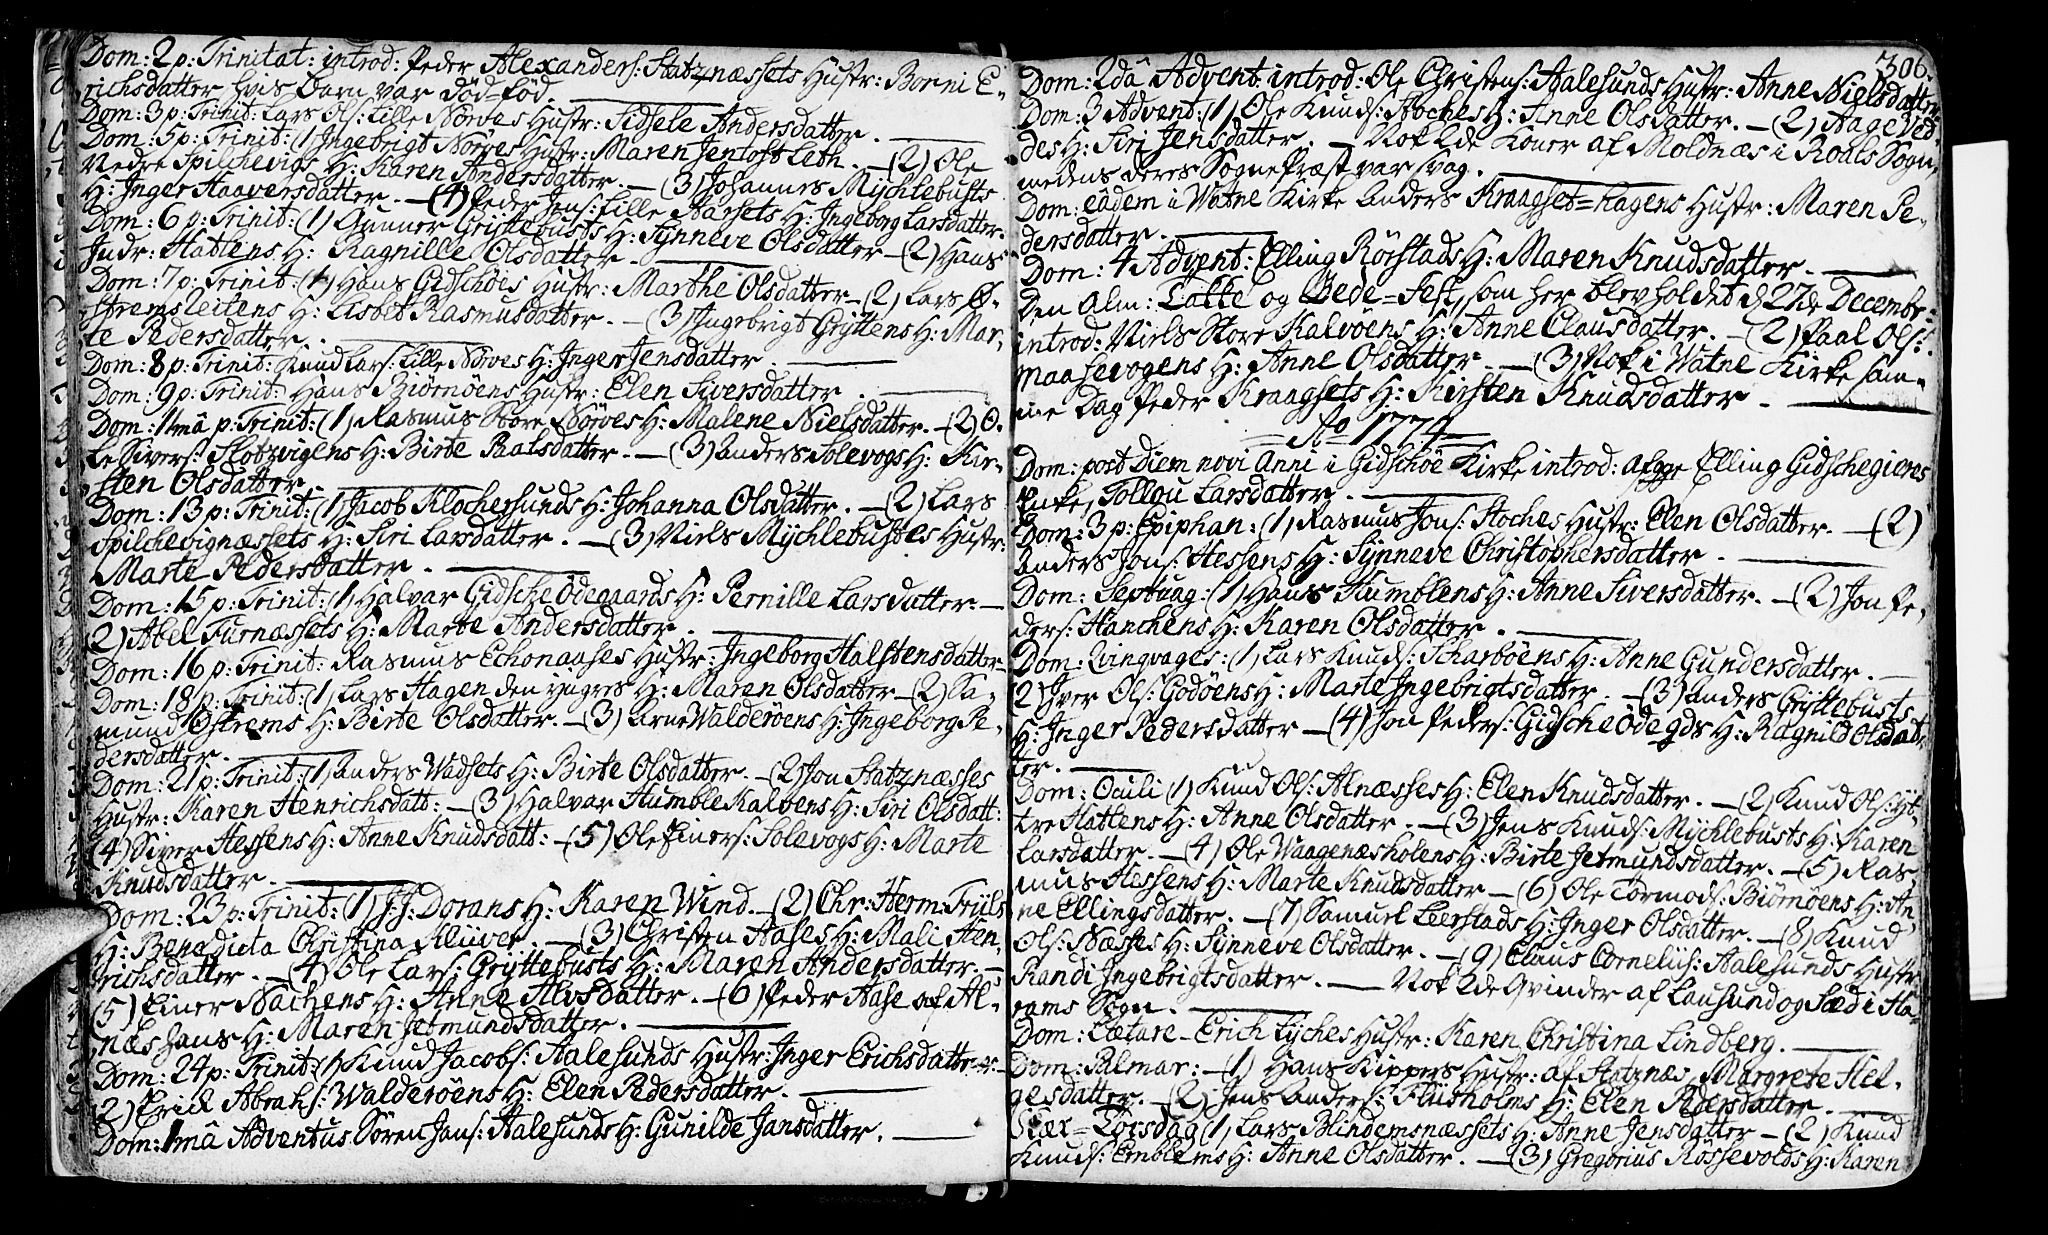 Dom: 2 p: Trinitat: introd: Peder Alexanders: Statznæssets Hustr: Borni E-
richsdatter hvis Barn var død-fød.
Dom: 3 p: Trinit: Lars Ols: Lille Nørves Hustr: Sidsele Andersdatter.
Dom: 5 p: Trinit: (1) Ingebrigt Nørves Hustr: Maren Jentoft Leth. — (2) Ole
Nedre Spilchevigs H: Karen Andersdatter. — (3) Johannes Mÿchlebusts
H: Inger Haaversdatter. — (4) Peder Jens: Lille Aarsets H: Ingeborg Larsdatter.
Dom: 6 p: Trinit: (1) Gunner Grÿttebusts H: Sÿnneve Olsdatter — (2) Hans
Indr: Hattens H: Ragnille Olsdatter —
Dom: 7 p: Trinit: (1) Hans Gidschøes Hustr: Marthe Olsdatter — (2) Lars Ø-
stremsleitens H: Lisbet Rasmusdatter. — (3) Ingebrigt Grÿttens H: Mar-
te Pedersdatter.
Dom: 8 p: Trinit: Knud Lars: Lille Nørves H: Inger Jensdatter
Dom: 9 p: Trinit: Hans Biørnøens Hustr: Elen Siversdatter
Dom: 11mâ p: Trinit: (1) Rasmus Store Nörves H: Malene Nielsdatter. — (2) O-
le Sivers: Slotzvigens H: Birte Paalsdatter. — (3) Anders Solevogs H: Kir-
sten Olsdatter.
Dom: 13 p: Trinit: (1) Jacob Klochersunds H: Johanna Olsdatter. — (2) Lars
Spilchevignæssets H: Siri Larsdatter. — (3) Niels Mÿchlebustes Hustr:
Marte Pedersdatter.
Dom: 15 p: Trinit: (1) Halvar Gidsche Ödegaards H: Pernille Larsdatter. —
2) Abel Furnæssets H: Marte Andersdatter.
Dom: 16 p: Trinit: Rasmus Echonaases Hustr: Ingeborg Halstensdatter
Dom: 18 p: Trinit: (1) Lars Hagen den yngres H: Maren Olsdatter — (2) Sa-
mund Östrems H: Birte Olsdatter. — (3) Arne Walderöens H: Ingeborg Pe-
dersdatter.
Dom: 21 p: Trinit: (1) Anders Wadsets H: Birte Olsdatter. — (2) Jon Statznæsses
Hustr: Karen Henrichsdatt: — (3) Halvar Humblekalvøens H: Siri Olsdatt:
(4) Siver Hessens H: Anne Knudsdatt: — (5) Ole Einers: Solevogs H: Marte
Knudsdatter.
Dom: 23 p: Trinit: (1) J: J: Dorans H: Karen Wind. — (2) Chr: Herm: Friils
H: Benedicta Christina Klüver. — (3) Christen Aases H: Mali Hen-
richsdatter. — (4) Ole Lars: Grÿttebusts H: Maren Andersdatter. —
(5) Einer Nachens H: Anne Alvsdatter. — (6) Peder Aase af Al-
næs hans H: Maren Jetmundsdatter.
Dom: 24 p: Trinit: (1) Knud Jacobs: Aalesunds Hustr: Inger Erichsdatter
2) Erick Abrahs: Walderöens H: Elen Pedersdatter.
Dom: 1mâ Adventus Sören Jans: Aalesunds H: Gunilde Jansdatter.
306.
Dom: 2dâ Advent: introd: Ole Christens: Aalesunds Hustr: Anne Nielsdatter
Dom: 3 Advent: (1) Ole Knuds: Stoches H: Anne Olsdatter. — (2) Aage Ved-
des H: Siri Jensdatter. — Nok 2de Koner af Moldnæs i Roals Sogn,
medens deres Sogne Præst var svag.
Dom: eâdem i Watne Kirke Anders Kraagset=hagens Hustr: Maren Pe-
dersdatter.
Dom: 4 Advent: Elling Rörstads H: Maren Knudsdatter.
Den Alm: Takke og Bede=Fest, som her blev holdet d 27de Decembr:
introd: Niels Store Kalvöens H: Anne Clausdatter. — (2) Paal Ols:
Maasevogens H: Anne Olsdatter. — (3) Nok i Watne Kirke sam-
me Dag Peder Kraagsets H: Kirsten Knudsdatter.
Ao 1774
Dom: post Diem novi Anni i Gidschöe Kirke introd: afgge Elling Gidschegierdes
Enke, Tollou Larsdatter.
Dom: 3 p: Epiphan: (1) Rasmus Jons: Stoches Hustr: Elen Olsdatter. — (2)
Anders Jons: Hessens H: Sÿnneve Christophersdatter.
Dom: Septuag: (1) Hans Humblens H: Anne Siversdatter. — (2) Jon Pe-
ders: Hanchens H: Karen Olsdatter.
Dom: Qvinqvages: (1) Lars Knuds: Scharböens H: Anne Gundersdatter. —
2) Iver Ols: Godöens H: Marte Ingebrigtsdatter. — (3) Anders Grÿttebusts
H: Inger Pedersdatter — (4) Jon Peders: Gidsche Ödegds H: Ragnild Olsdat-
ter.
Dom: Oculi (1) Knud Ols: Alnæsses H: Elen Knudsdatter. — (2) Knud Ols: Ÿt-
tre Hattens H: Anne Olsdatter. — (3) Jens Knuds: Mÿchlebusts H: Karen
Larsdatter. — (4) Ole Waagenæsholens H: Birte Jetmundsdatter. — (5) Ras-
mus Hessens H: Marte Knudsdatter — (6) Ole Tormods: Biörnöens H: An-
ne Ellingsdatter. — (7) Samuel Leerstads H: Inger Olsdatter. — (8) Knud
Ols: Næsses H: Sÿnneve Olsdatter. — (9) Claus Cornelius: Aalesunds Hustr
Randi Ingebrigtsdatter. — Nok 2de Qvinder af Lausund og Sæd i Ha-
rams Sogn.
Dom: Lætare — Erich Lyches Hustr: Karen Christina Lindberg.
Dom: Palmar: — (1) Hans Kippers Hustr: af Statznæs, Margrete Hel-
gesdatter. — (2) Jens Anders: Flüsholms H: Elen Pedersdatter.
Skær=Torsdag (1) Lars Blindemsnæssets H: Anne Jensdatter — (2) Knud
Knuds: Emblems H: Anne Olsdatter. — (3) Gregorius Rössevolds H: Karen